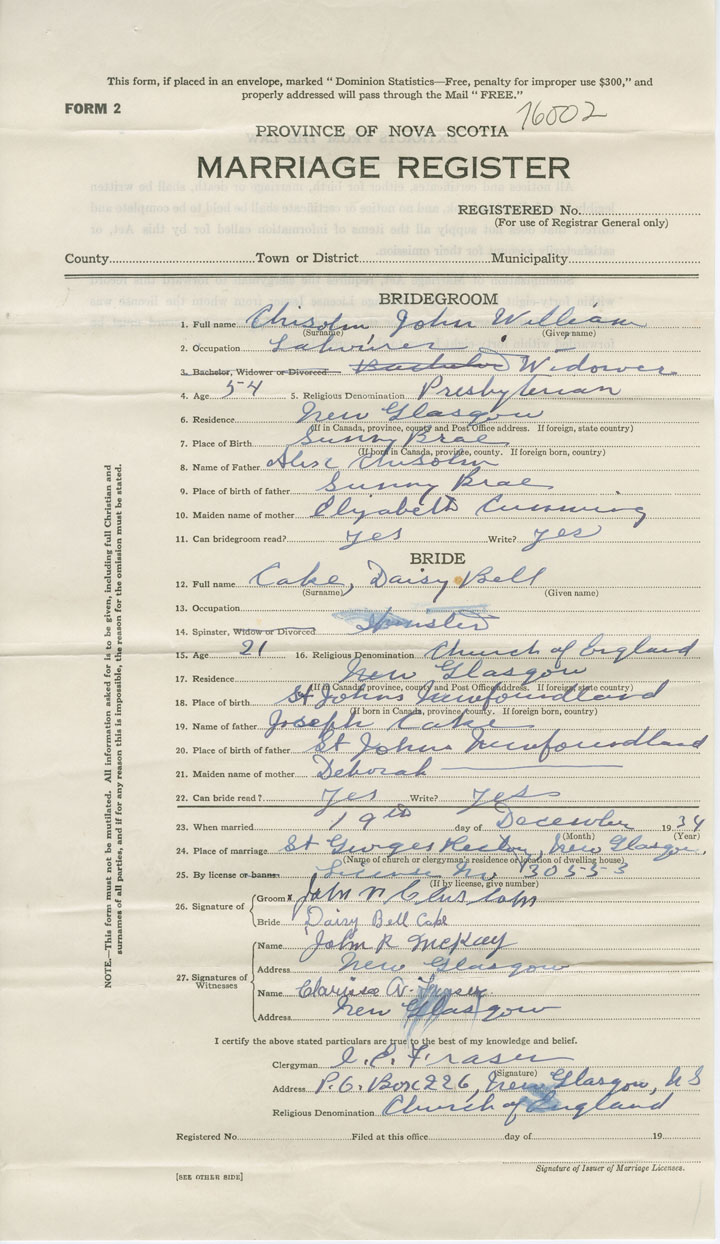 This form, if placed in an envelope, marked " Dominion Statistics—Free, penalty for improper use $300," and
properly addressed will pass through the Mail " FREE."
FORM 2
16002
PROVINCE OF NOVA SCOTIA
MARRIAGE REGISTER
REGISTERED No.
(For use of Registrar General only)
County Town or District Municipality
BRIDEGROOM
1. Full name Chisolm John William
(Surname) (Given name)
2. Occupation Labourer
3. Bachelor, Widower or Divorced Bachelor Widower
4. Age 54 5. Religious Denomination Presbyterian
6. Residence New Glasgow
(If in Canada, province, county and Post Office address. If foreign, state country)
7. Place of Birth Sunny Brae
(If born in Canada, province, county. If foreign born, country)
8. Name of Father Alex Chisolm
9. Place of birth of father Sunny Brae
10. Maiden name of mother Elizabeth Cumming
11. Can bridegroom read? yes Write? yes
BRIDE
12. Full name Cake, Daisy Bell
(Surname) (Given name)
13. Occupation
14. Spinster, Widow or Divorced Spinster
15. Age 21 16. Religious Denomination Church of England
17. Residence New Glasgow
(If in Canada, province, county and Post Office address. If foreign, state country)
18. Place of birth St Johns Newfoundland
(If born in Canada, province, county. If foreign born, country)
19. Name of father Joseph Cake
20. Place of birth of father St Johns Newfoundland
21. Maiden name of mother Deborah
22. Can bride read? yes Write? yes
23. When married 19th day of December 1934
(Month) (Year)
24. Place of marriage St Georges Rectory, New Glasgow.
(Name of church or clergyman's residence or location of dwelling house)
25. By license or banns License No 30553
(If by license, give number)
26. Signature of Groom X John W Chisholm
Bride Daisy Bell Cake
27. Signatures of Witnesses
Name John R McKay
Address New Glasgow
Name Clarissa A. Fraser
Address New Glasgow
I certify the above stated particulars are true to the best of my knowledge and belief.
Clergyman C. E. Fraser
(Signature)
Address P.O. Box 226, New Glasgow, NS
Religious Denomination Church of England
Registered No. Filed at this office day of 19
Signature of Issuer of Marriage Licenses.
[SEE OTHER SIDE]
NOTE.—This form must not be mutilated. All information asked for is to be given, including full Christian and
surnames of all parties, and if for any reason this is impossible, the reason for the omission must be stated.